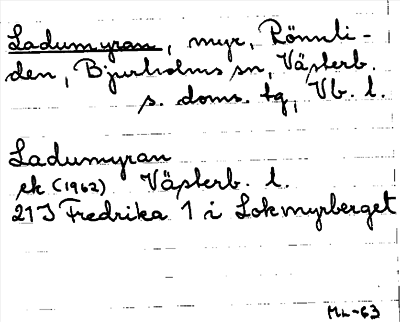 Ladumyran, myr, Rönnli-
den, Bjurholms sn, Västerb.
s. doms. tg, Vb. l.
Ladumyran
ek (1962) Västerb. l.
21J Fredrika 1 i Lokmyrberget
ML-63